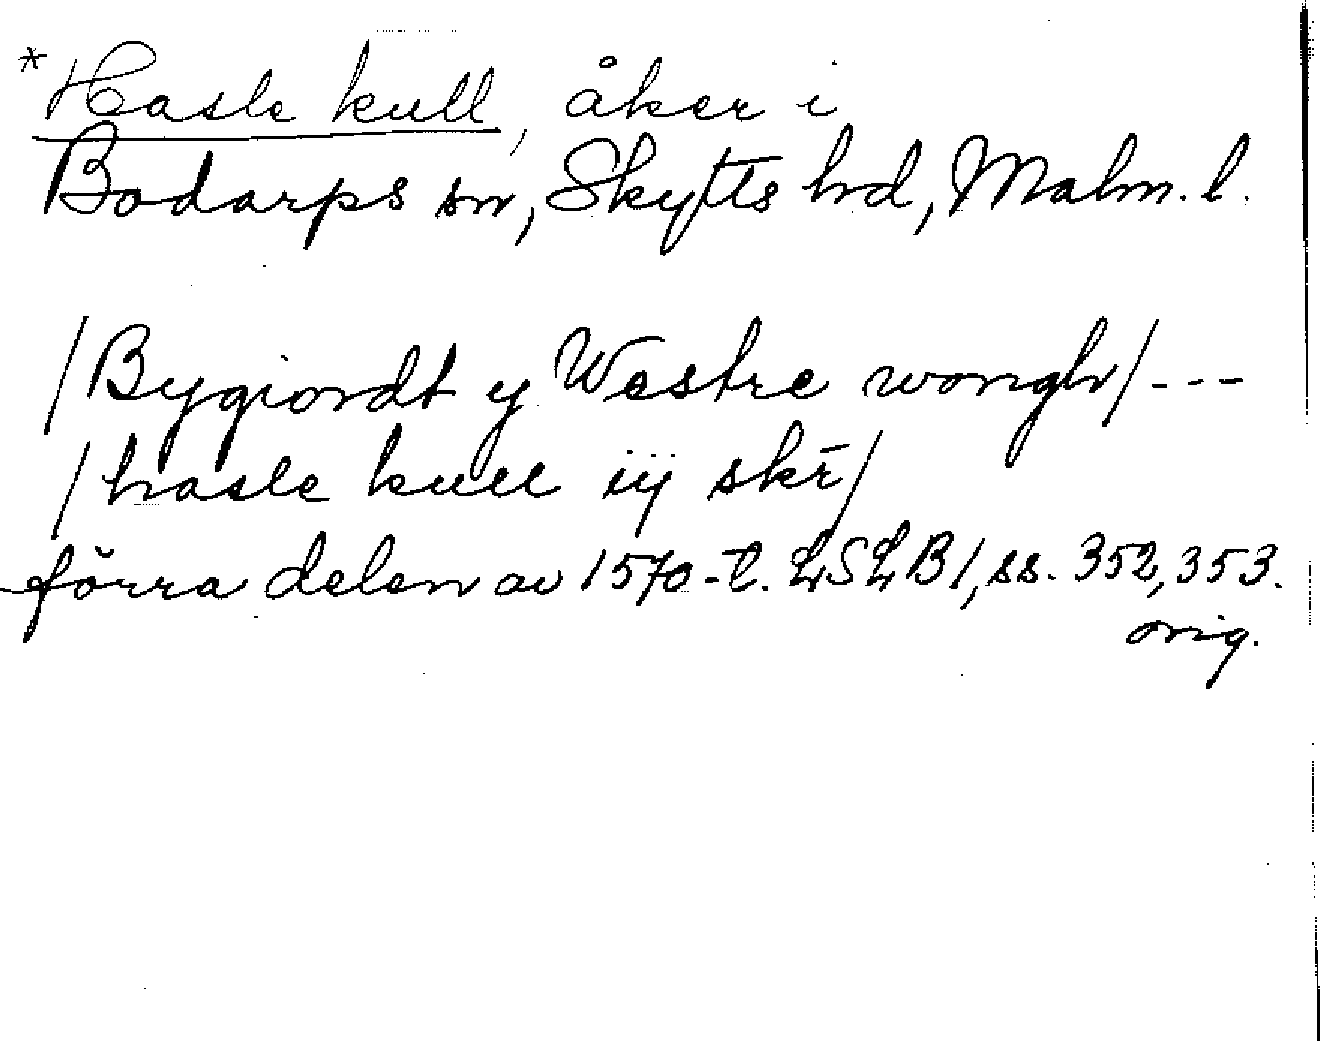 * Hasle kull, åker i
Bodarps sn, Skytts hd, Malm. l.
/Bygiordt y Westre wongh/---
/hasle kull iij skr̄/
förra delen av 1570-t. LSLB1, ss. 352, 353.
orig.